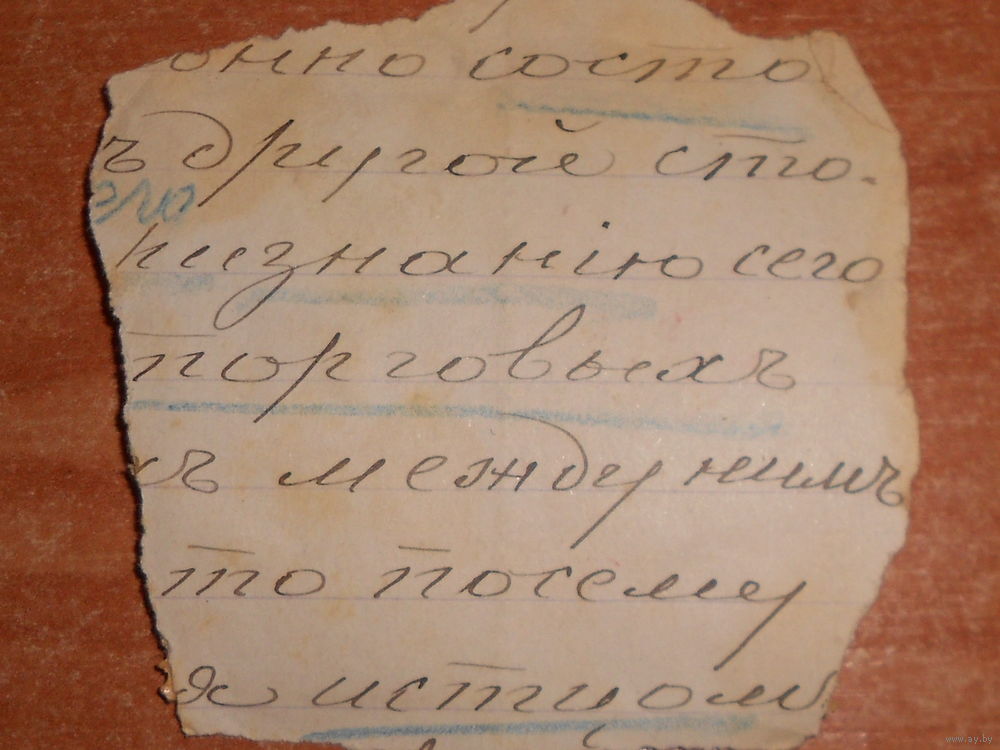 онно состо
ъ другой сто.
гю
ризнанію сего
торговыхъ
хъ между нимъ
то посему
я истцом
www.ay.by